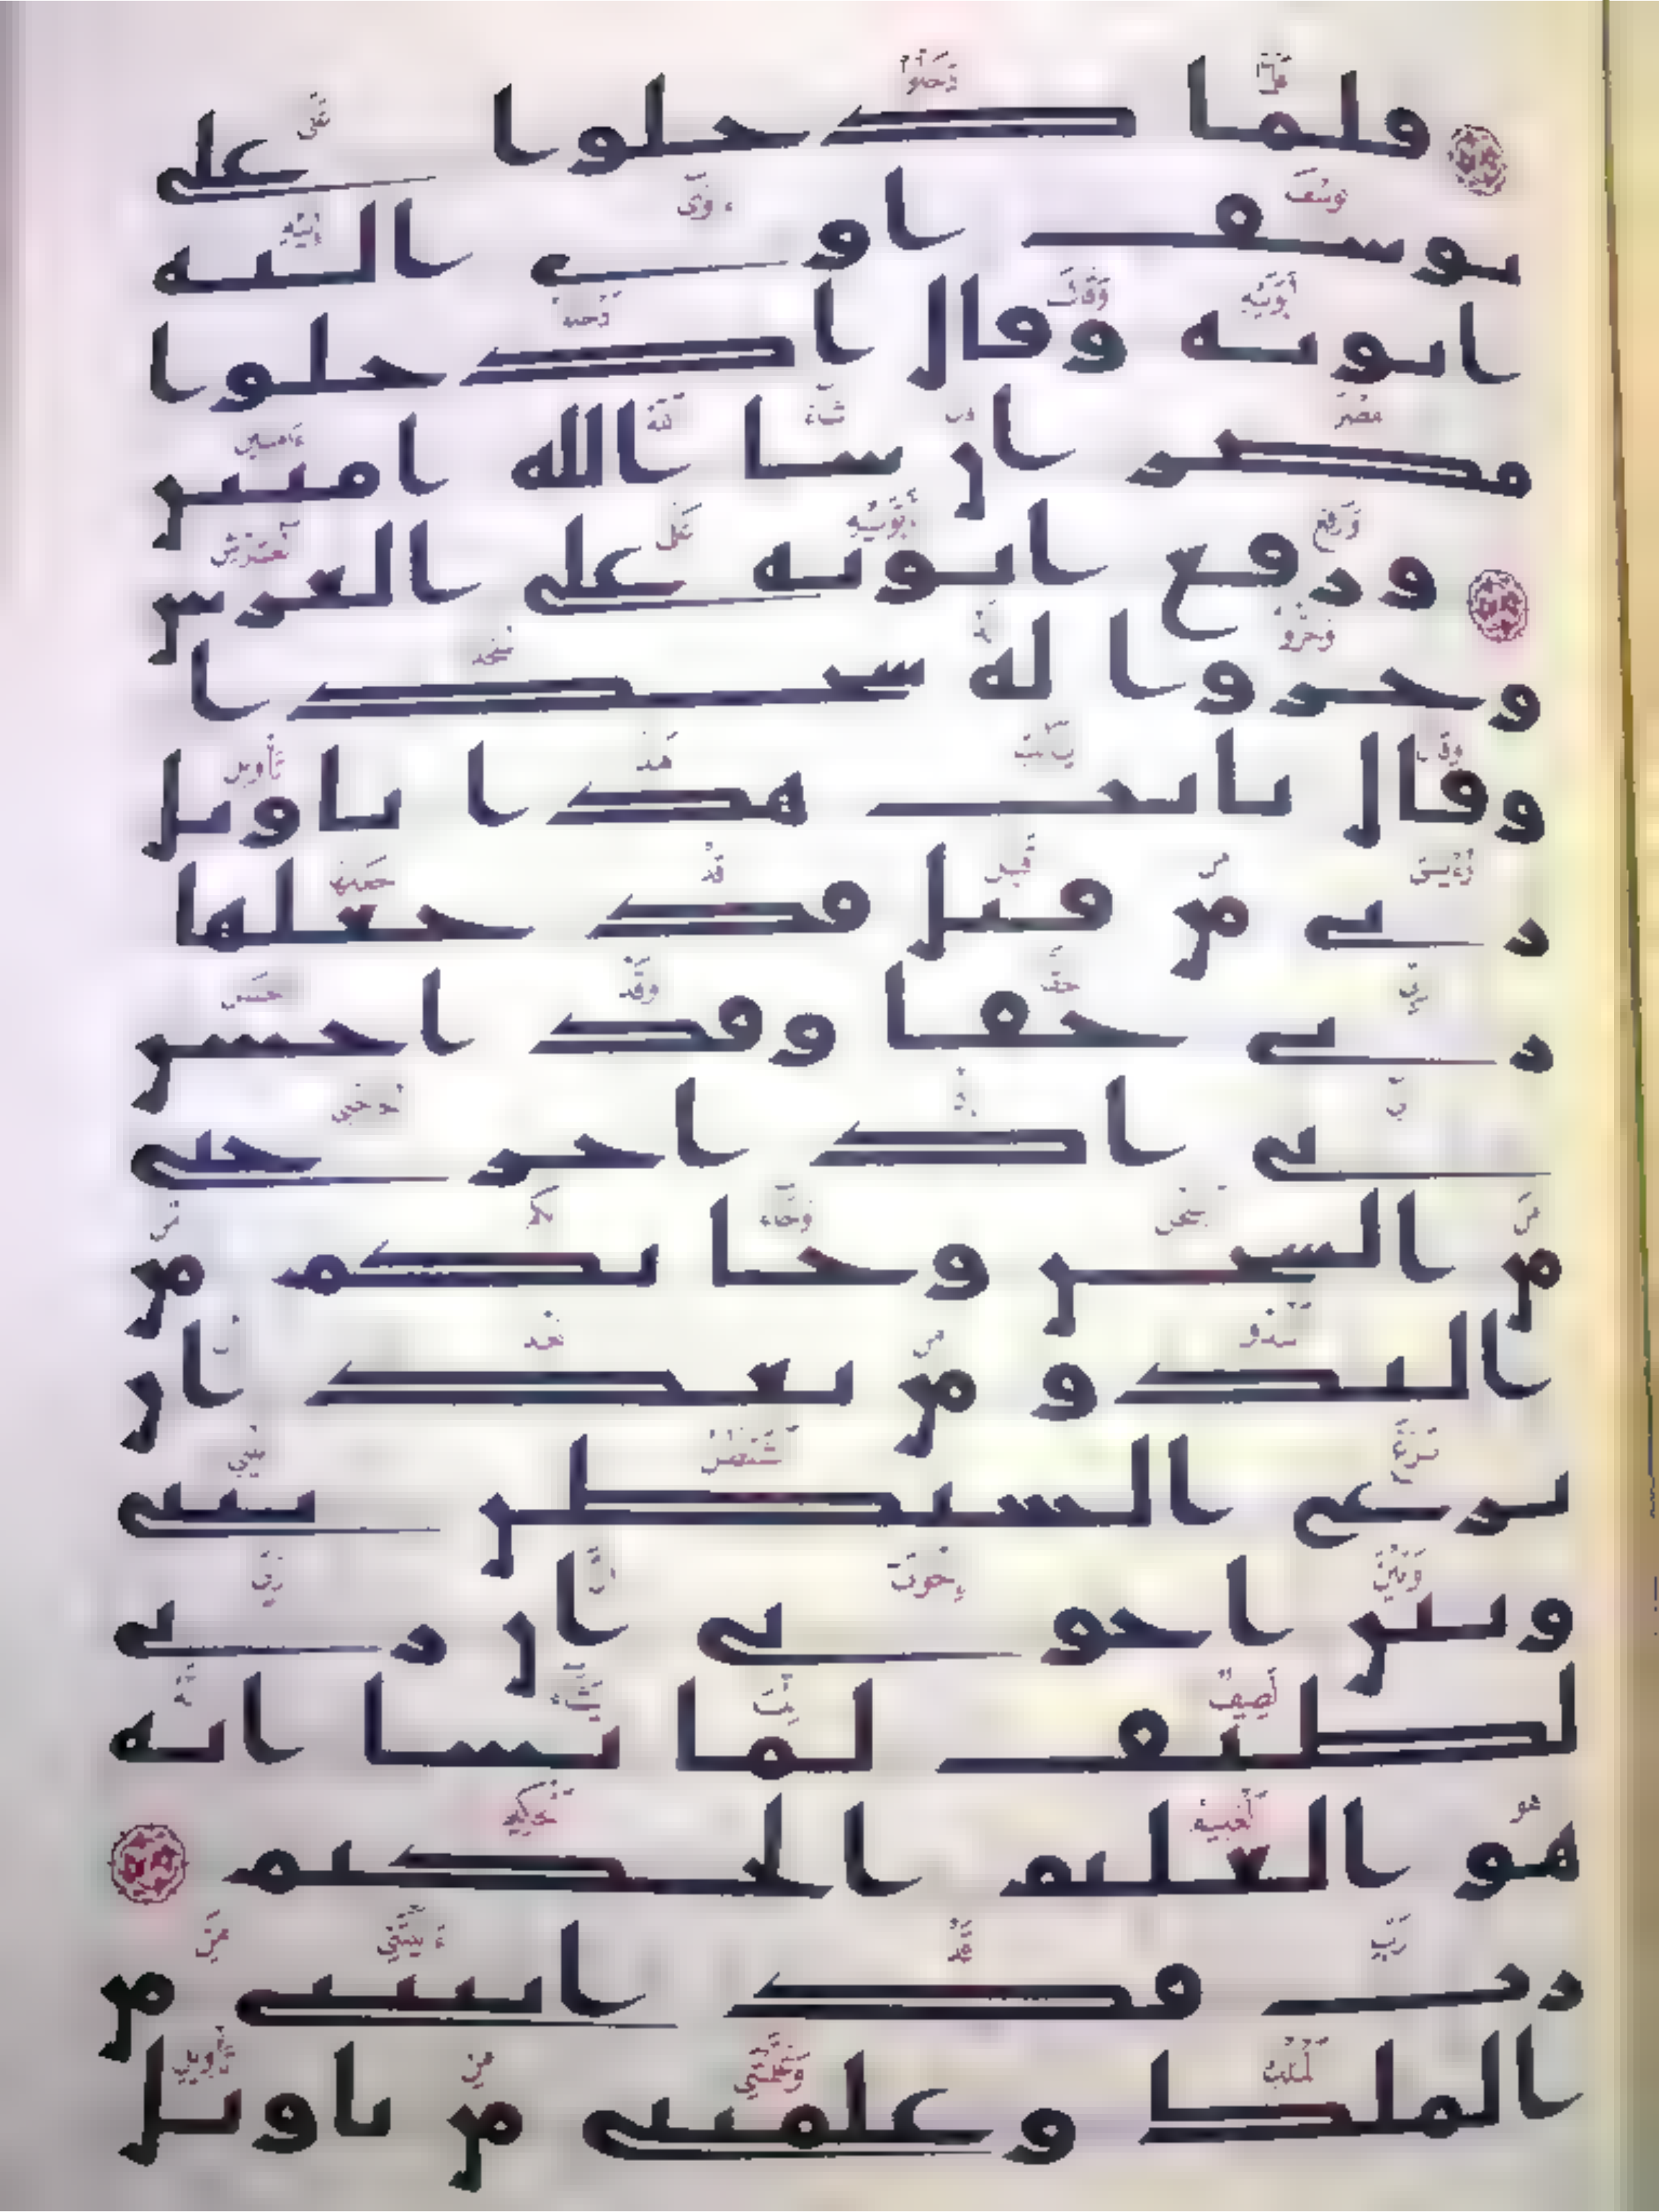 فلما دخلوا على
يوسف اوى اليه
ابويه وقال ادخلوا
مصر ان شا الله امنين
ورفع ابويه على العرش
وخروا له سجدا
وقال يابت هذا تاويل
ريى من قبل قد جعلها
ربى حقا وقد احسن
بى اذ اخرجنى
من السجن وجا بكم من
البدو من بعد ان
نزغ الشيطن بينى
وبين اخوتى ان ربى
لطيف لما يشا انه
هو العليم الحكيم
رب قد اتيتنى من
الملك وعلمتنى من تاويل